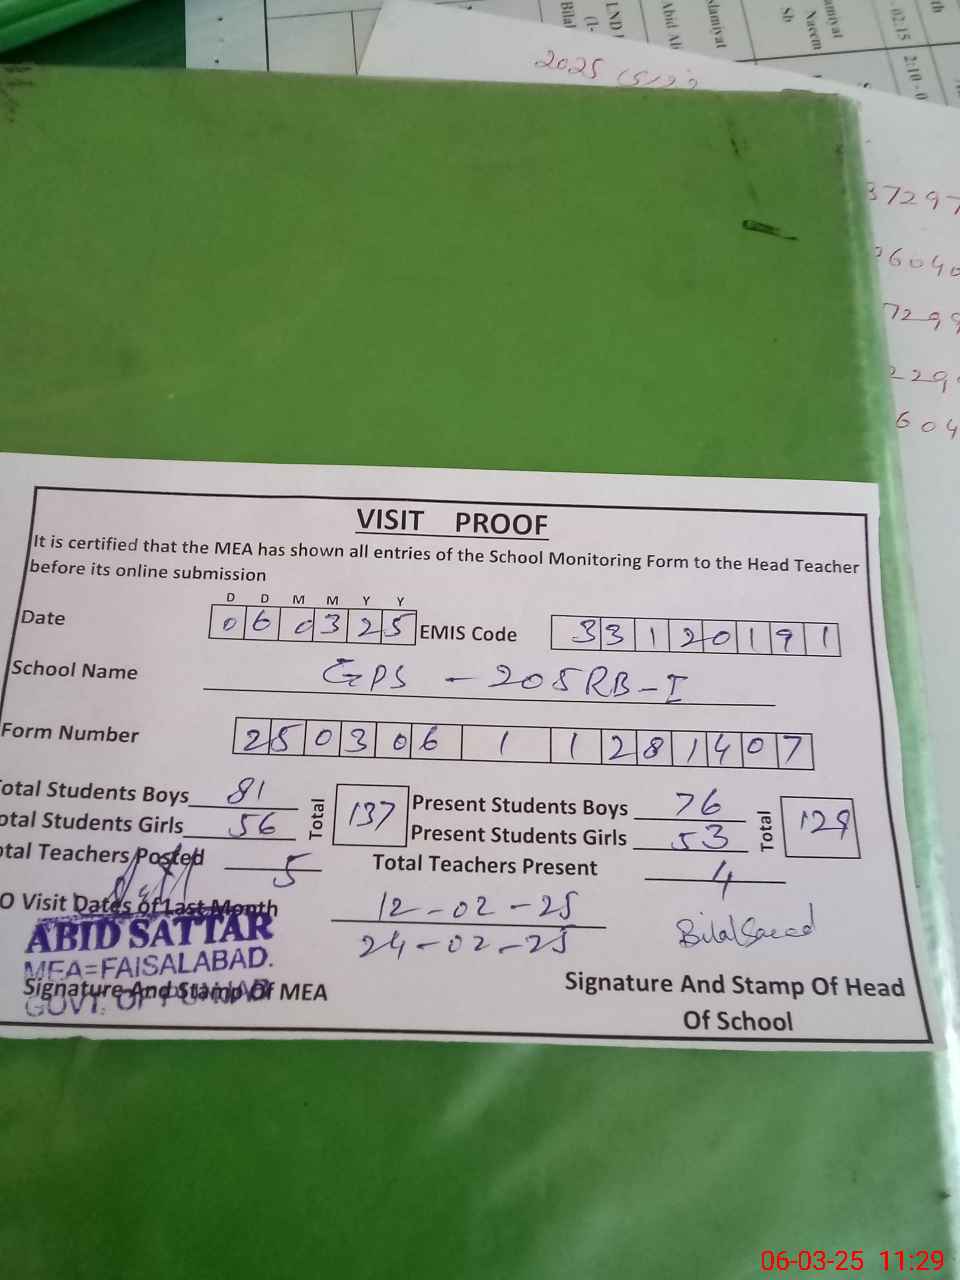 2025
37297
6040
7299
229
604
VISIT PROOF
It is certified that the MEA has shown all entries of the School Monitoring Form to the Head Teacher
before its online submission
D D M M Y Y
Date 0 6 0 3 2 5 EMIS Code 3 3 1 2 0 1 9 1
School Name GPS - 205RB-I
Form Number 2 5 0 3 0 6 1 1 2 8 1 4 0 7
otal Students Boys 81 Total 137 Present Students Boys 76 Total 129
otal Students Girls 56 Present Students Girls 53
otal Teachers Posted 5 Total Teachers Present 4
O Visit Dates of Last Month 12-02-25
24-02-25
Bilal Saeed
ABID SATTAR
MEA=FAISALABAD.
Signature And Stamp Of MEA
GOVT. OF PUNJAB
Signature And Stamp Of Head
Of School
06-03-25 11:29